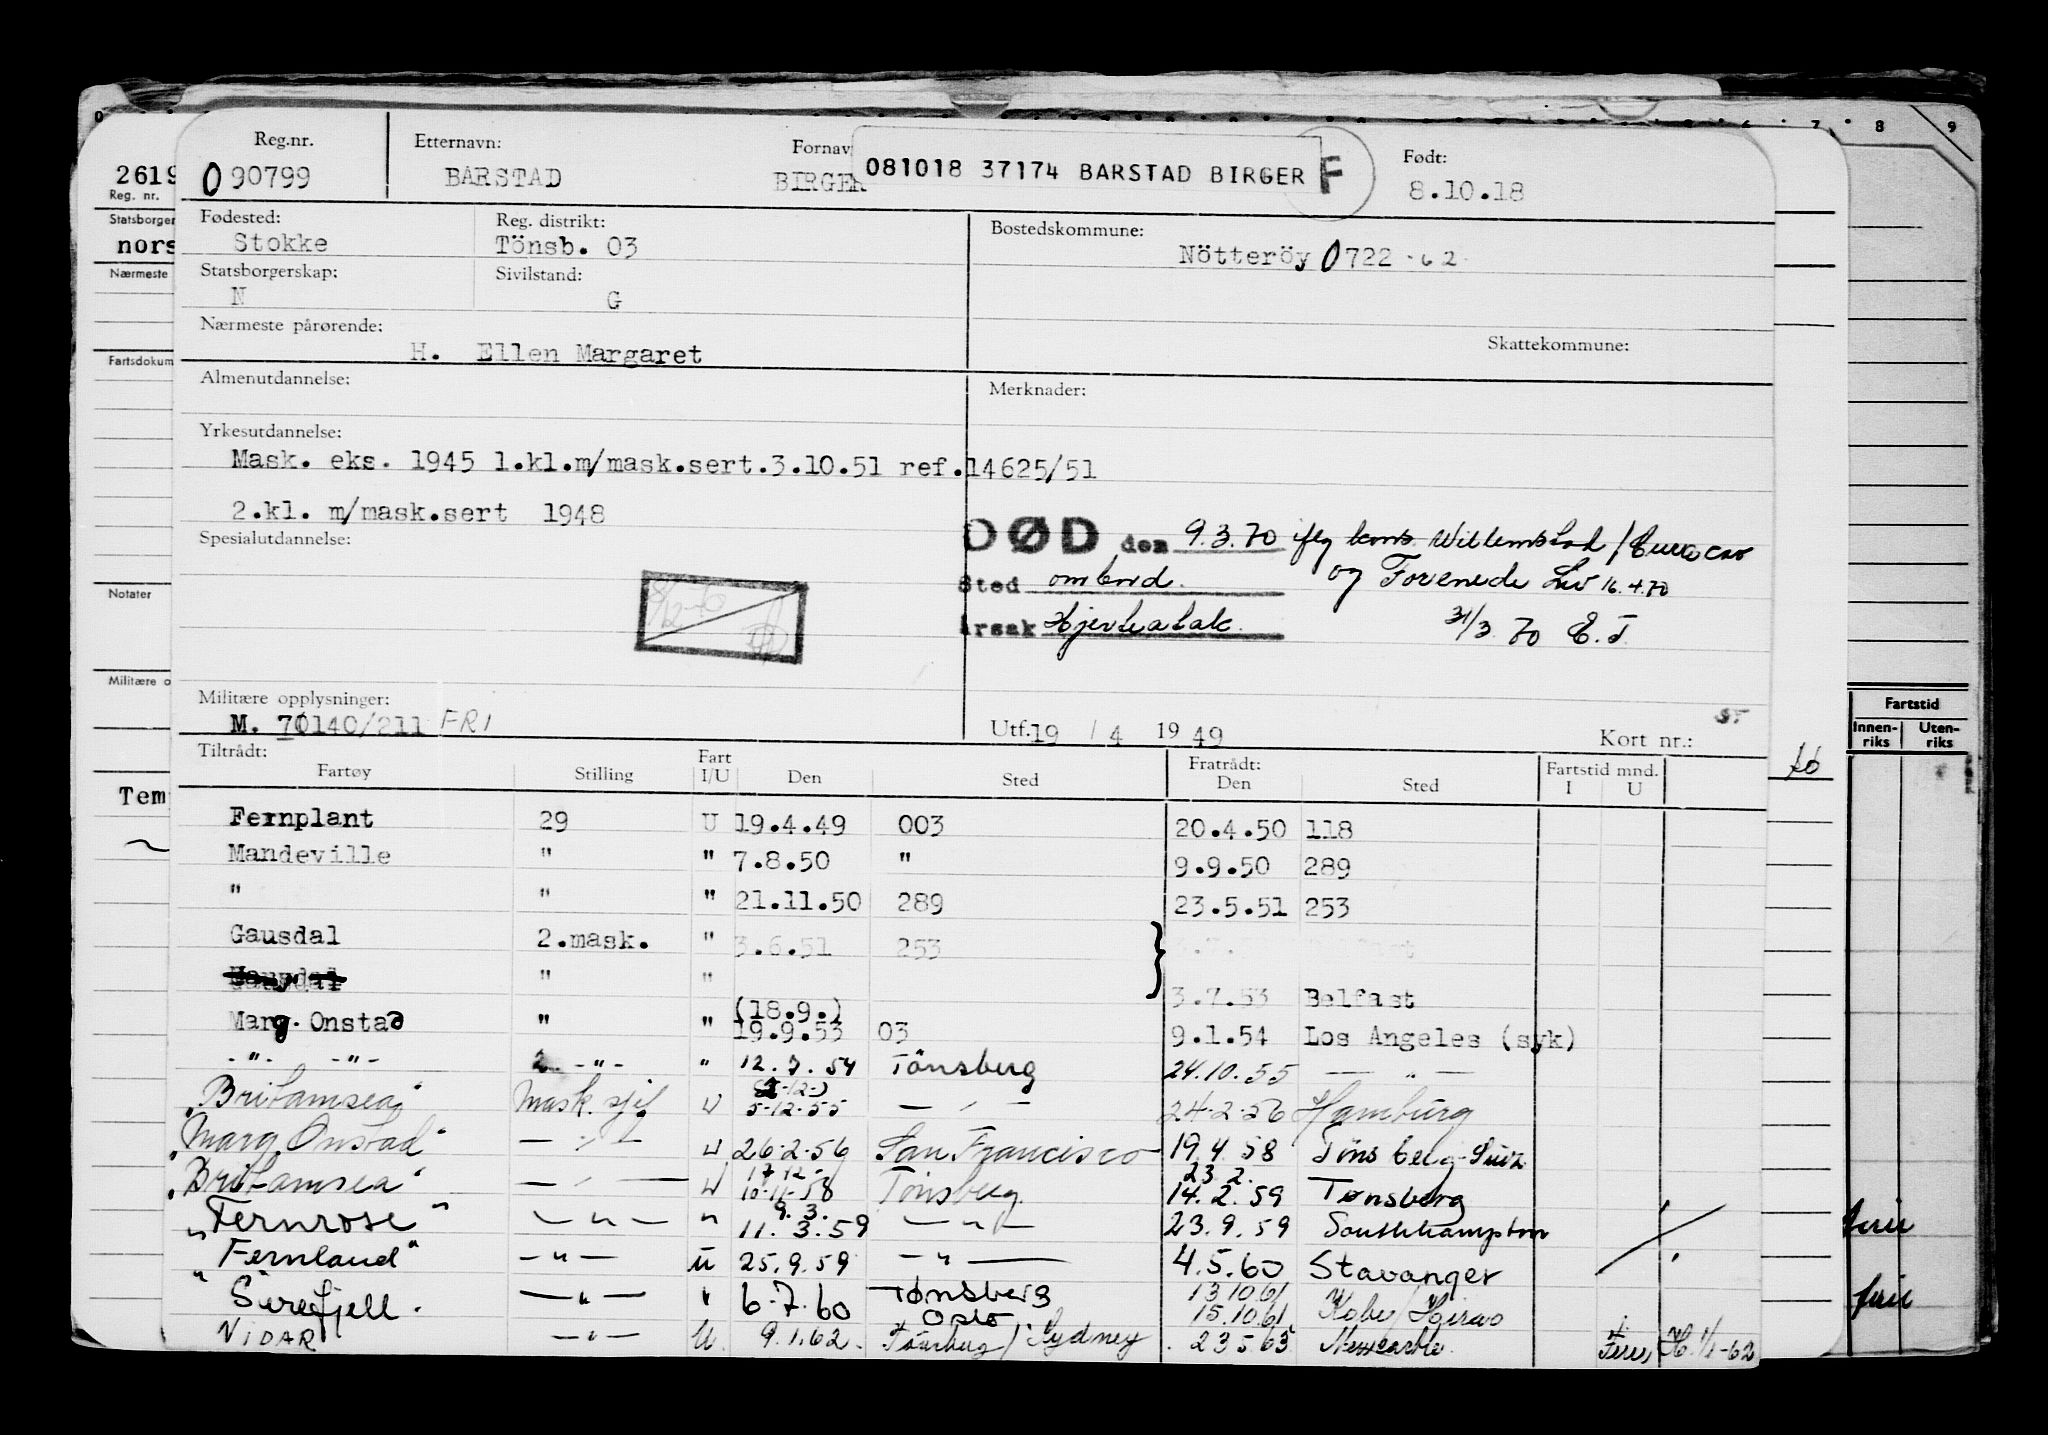 Reg.nr. Etternavn: Fornav 081018 37174 BARSTAD BIRGER F Født:
090799 BARSTAD BIRGER 8.10.18
Fødested: Reg. distrikt: Bostedskommune:
Stokke Tönsb. 03 Nötteröy 0722 -62
Statsborgerskap: Sivilstand:
N G
Nærmeste pårørende: Skattekommune:
H. Ellen Margaret
Almenutdannelse: Merknader:
Yrkesutdannelse:
Mask. eks. 1945 1.kl.m/mask.sert.3.10.51 ref.14625/51
2.kl. m/mask.sert 1948
DØD den 9.3.70 iflg kons. Willemstad / Curacao
Spesialutdannelse:
Sted ombord. og Forenede Liv 16.4.70
Årsak Hjerteatak. 31/3 70 E.T.
8/12-70
Militære opplysninger:
M. 70140/211 FRI Utf. 19 / 4 19 49 Kort nr.:
Tiltrådt: Fart Fratrådt: Fartstid mnd.
Fartøy Stilling I/U Den Sted Den Sted I U
Fernplant 29 U 19.4.49 003 20.4.50 118
Mandeville " " 7.8.50 " 9.9.50 289
" " " 21.11.50 289 23.5.51 253
Gausdal 2.mask. " 3.6.51 253
Gausdal " " 3.7.53 Belfast
(18.9.)
Marg. Onstad " " 19.9.53 03 9.1.54 Los Angeles (syk)
-"- -"- 2. -"- " 12.7.54 Tönsberg 24.10.55 — " —
"Britamsea" Mask. sjef U 5-12-55 — " — 24-2-56 Hamburg
"Marg. Onstad" — " — U 26-2-56 San Francisco 19.4.58 Tönsberg
17 12- 23 2.
"Britamsea" — " — U 10-11-58 Tönsberg. 14.2.59 Tønsberg
9.3.
"Fernrose" — " — " 11.3.59 — " — 23.9.59 Southhampton
"Fernland" — " — U 25.9.59 — " — 4.5.60 Stavanger
13.10.61
"Sirefjell. — " — " 6.7.60 Tønsberg Oslo 15.10.61 Kobe/
VIDAR — " — U. 9.1.62. Tönsberg/Sydney 23 5 63 Newcastle. H. 1/1-62
2619
Reg. nr.
Statsborger
nors
Nærmeste
Fartsdokum
Notater
Militære o
Tem
6 7 8 9
Fartstid
Innen-riks Uten-riks